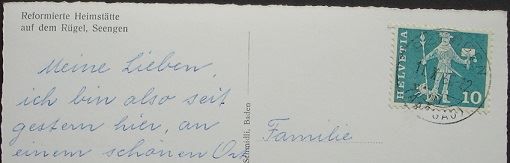 Reformierte Heimstätte
auf dem Rügel, Seengen
Meine Lieben,
ich bin also seit
gestern hier, an
einem schönen
Schmidli, Baden
Familie
HELVETIA
10